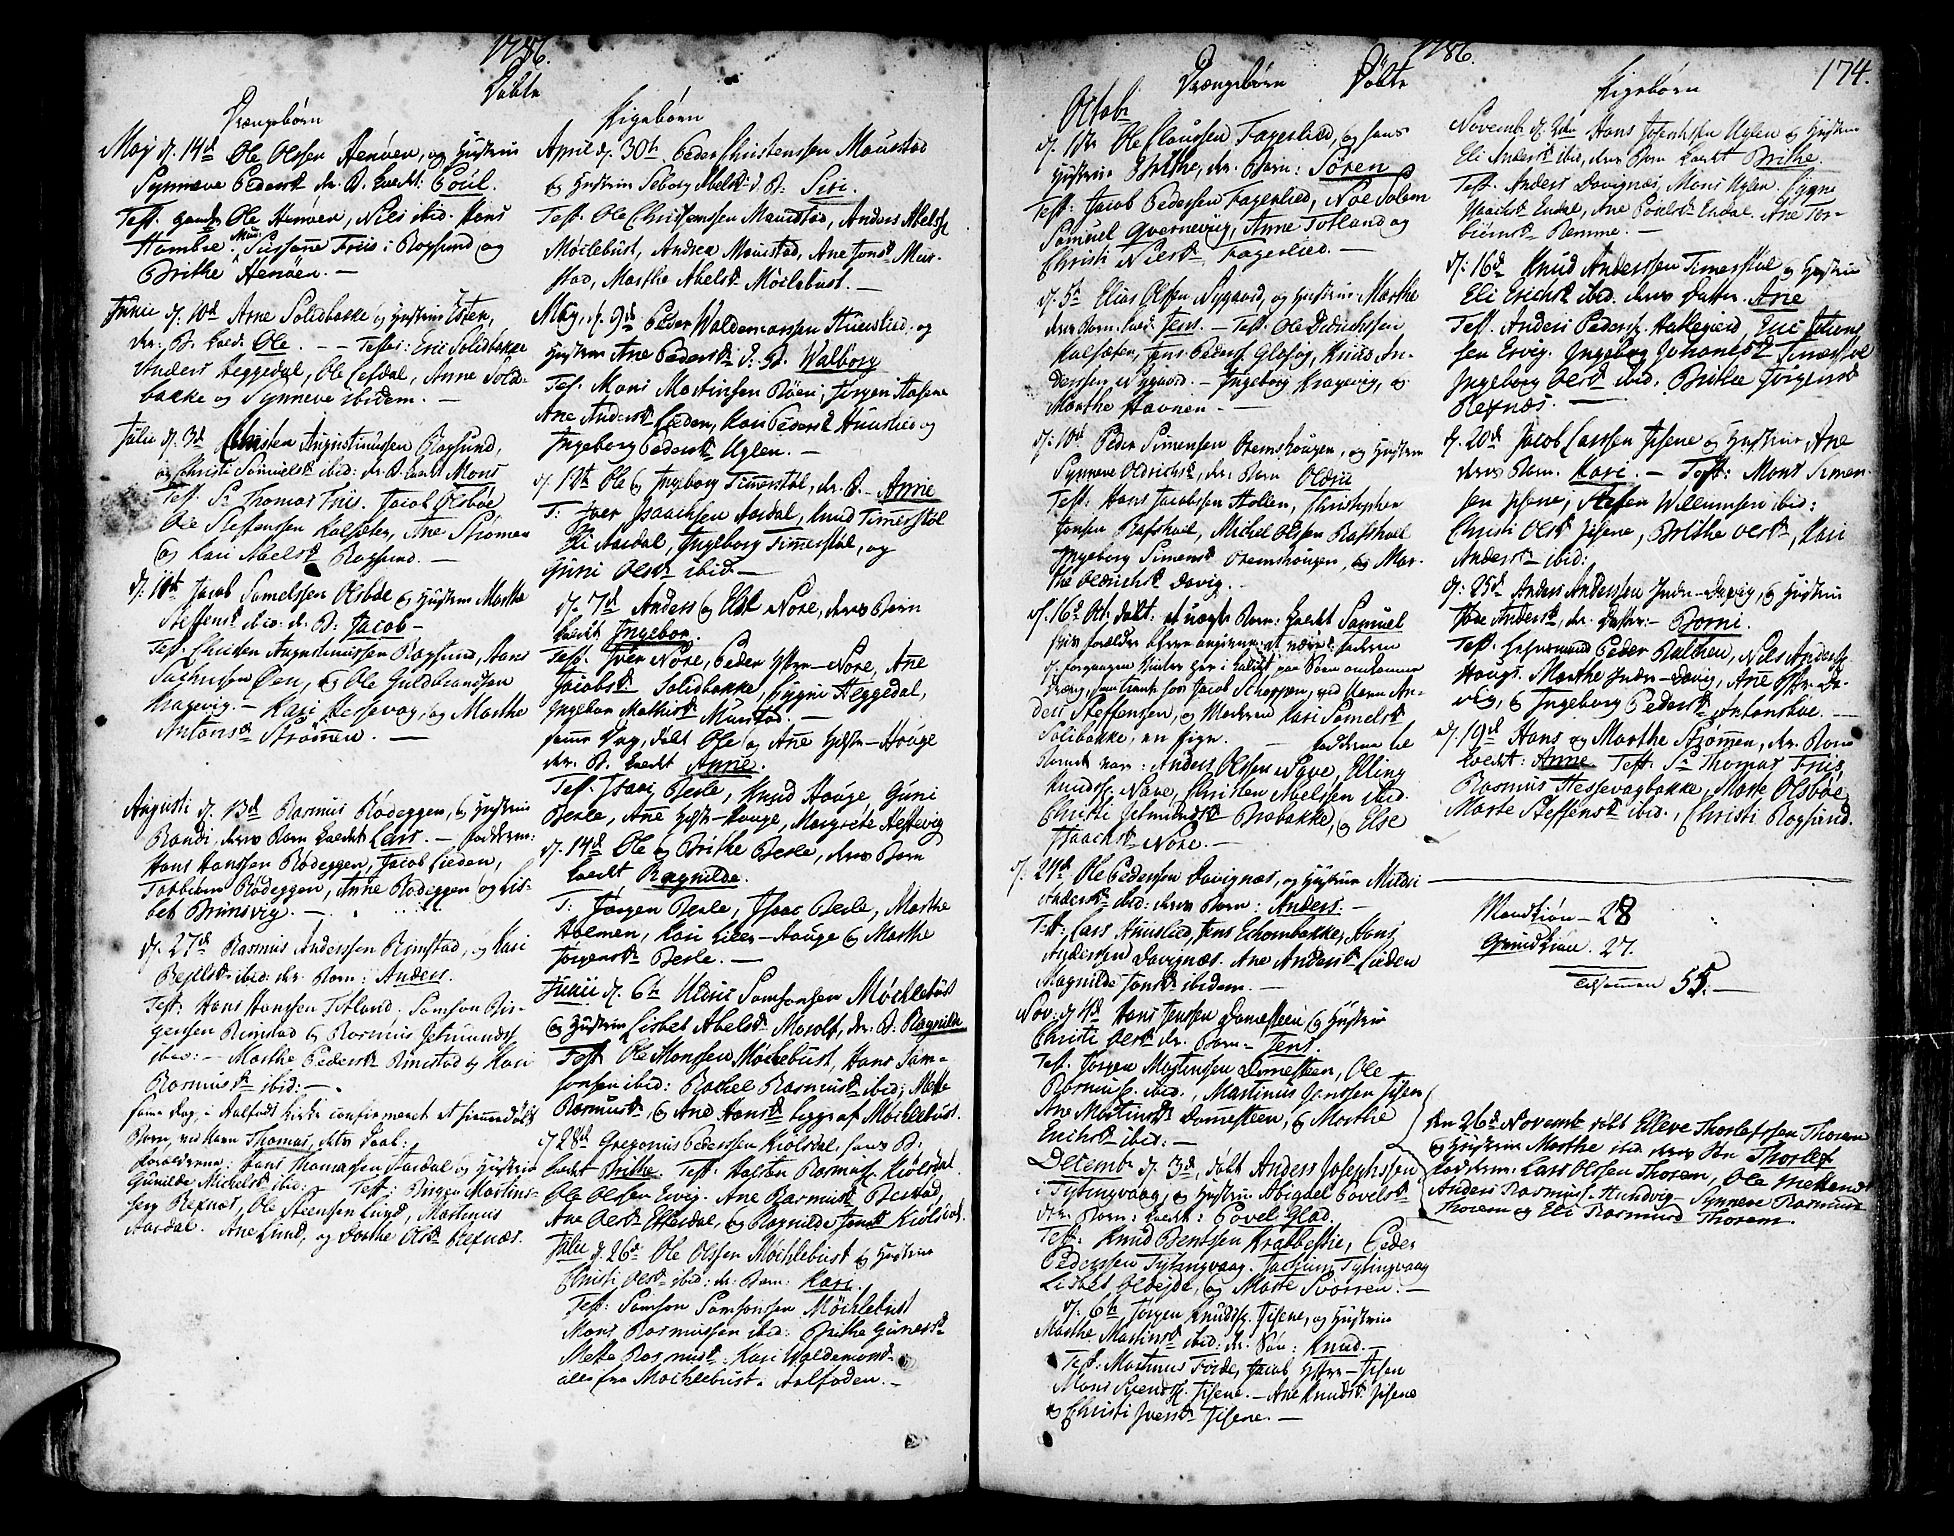 1786.
Döbte
Drængebörn
May d. 14d Ole Olsen Henöen, og Hustrue
Synneve Pedersd. der. B. kaldt: Poul.
Test. Ole Henöen, Nils ibid. Hans
Humble, Mad: Susanne Friis i Rogsund og
Brithe Henöen. —
Junii d. 10d Arne Solidbakke og Hustrue Ester,
der: B. kald. Ole. — Testes: Eric Solidbakke
Anders Heggedal, Ole Lefdal, Anne Solid-
bakke og Synneve ibidem. —
Julii d. 3d Christen Augustinussen Rogsund,
og Christi Samuelsd. ibid: der. B. kaldt Mons
Test. Sr. Thomas Friis. Jacob Olsböe,
Ole Steffenssen Kalsæter, Ane Strömen
og Kari Abelsd. Rogsund. —
d. 10d Jacob Samelssen Olsböe og Hustrue Marthe
Steffensd. ibid. d. B: Jacob —
Test. Christen Augustinussen Rogsund, Hans
Öen, og Ole Guldbrandsen
Kragevig. — Kari Hessevog og Marthe
Antonsd. Strömen. —
Augusti d. 13d Rasmus Rödeggen, og Hustrue
Randi, deres Barn kaldt Lars. — Fadderne:
Hans Hanssen Rödeggen, Jacob Lieden,
Torbiörn Rödeggen, Anne Rödeggen og Lis-
bet Brunsvig. —
d. 27d Rasmus Anderssen Rimstad, og Kari
ibid: der. Barn: Anders.
Test: Hans Hanssen Totland, Samson Bir-
gerssen Rimstad og Rasmus Jetmundss.
ibid: — Marthe Pedersd. Rimstad og Kari
Rasmusd. ibid: —
samme dag, i Aalfods Kirke confirmeret et hiemmedöbt
Barn, ved navn Thomas, dets Daab:
Forælderne: Hans Thomassen Aardal og Hustrue
Gunilde Michelsd. ibid: — Test: Birger Martins-
sen Rexnæs, Ole Steensen Lund, Martinus
Aardal. Ane Lund, og Dorthe Olsd. Rexnæs.
Pigebörn
April d. 30te Peder Christenssen Maurstad
og Hustrue Seborg Abelsd: d. B: Siri.
Test. Ole Christenssen Maurstad, Anders Abelss.
Möclebust, Andrea Maurstad, Ane Jonsd. Mur-
stad, Marthe Abelsd. Möclebust. —
May, d. 9d Peder Waldemarssen Huuslied, og
Hustrue Ane Pedersd. d: B. Walborg
Test. Mons Mortinsen Röen, Jörgen Hafene
Ane Andersd. Lieden, Kari Pedersd. Huuslied og
Ingeborg Pedersd. Uglen. —
d. 17d Ole og Ingeborg Timerstöl, der. B. — Anne
T: Iver Isaachsen Aardal, Knud Timerstöl
Eli Aardal, Ingeborg Timerstöl, og
Guri Olsd. ibid. —
d. 7d Anders og Else Nore, deres Barn
kaldt Ingebor.
Test. Iver Nore, Peder Yttre-Nore, Ane
Jacobsd. Solidbakke, Sygni Heggedal,
Ingebor Mathisd. Murstad. —
samme Dag, döbt Ole og Ane Yttre-Houge
der. B. kaldt Anne.
Test. Isaac Berle, Knud Houge, Guni
Berle, Ane Yttre-Houge, Margrete Hessevig
d. 14d Ole og Brithe Berle, deres Barn
kaldt Ragnilde.
T: Jörgen Berle, Isaac Berle, Marthe
Holmen, Kari Lille-Houge og Marthe
Jörgensd. Berle. —
Junii d. 6te Aldus Samsonsen Möchlebust
og Hustrue Lisbet Abelsd. Morolt, der. B. Ragnilde
Test. Ole Monssen Möchlebust, Hans Sam-
sonsen ibid: Rachel Rasmusd. ibid; Mette
Rasmusd. og Ane Hansd. begge af Möchlebust.
d. 28d Gregorius Pederssen Kiölsdal, hans B.
kaldt Brithe. Test. Halstan Rasmuss. Kiölsdal
Ole Olsen Ervig. Ane Rasmusd. Berstad,
Ane Olsd. Hessedal, og Ragnilde Jonsd. Kiölsdal.
Julii d. 26d Ole Olssen Möchlebust og Hustrue
Christi Olsd. ibid: der. Barn: Kari.
Test: Samson Samsonssen Möchlebust
Mons Rasmussen ibid: Brithe Gunersd.
Mette Rasmusd. Kari Waldemarsd.
alle fra Möchlebust. Aalfoden. —
1786.
174.
Drængebörn
Döbte
Octobr.
d. 1ste Ole Claussen Fagerlied, og hans
Hustrue Brithe, der. Barn: Sören
Test: Jacob Pedersen Fagerlied, Noe Solem
Samuel Qvernevig, Anne Totland og
Christi Nielsd. Fagerlied. —
d. 5te Elias Olsen Nygaard, og Hustrue Marthe
deres Barn kald: Jens. — Test: Ole Didrichssen
Kalsæter, Jens Peders. Glosög, Knud An-
derssen Nygaard. — Ingeborg Kragevig, og
Marthe Havnen. —
d. 10d Peder Simensen Bremshougen, og Hustrue
Synneve Oldrichsd. der. Barn Oldric
Test: Hans Jacobssen Hollen, Christopher
Jonsen Rafshoel, Michel Olssen Rafshoel
Ingeborg Simensd. Bremshougen, og Mar-
the Oldrichsd. Davig.
d. 16d Oct. döbt: et uægte Barn: kaldt Samuel
Jacob Schreppen, ved Navn An-
ders Steffensen, og Moderen Kari Samelsd.
Solibakke, en Pige. — Fadderne be
var: Anders Olssen Nave, Elling
Knudss. Nore, Christen Abelssen ibid.
Christi Jetmundsd. Brobakke, og Else
Isaachsd. Nore. —
d. 24d Ole Pederssen Davignæs, og Hustrue Mildri
Andersd. ibid: deres Barn: Anders. —
Test: Lars Huuslied, Jens Echornbakke, Hans
Anderssen Davignæs. Ane Andersd. Lieden
Magnilde Jonsd. ibidem. —
Nov: d. 4d Hans Jenssen Domesteen og Hustrue
Christi Olsd. der. Barn — Jens.
Test. Jörgen Mortinsen Domesteen, Ole
Rasmuss. ibid., Martinus Jenssen Ifisen
Ane Mortinsd. Domesteen, og Marthe
Erichsd. ibid: —
Decembr. d. 3d, döbt Anders Josephssen
i Tytingvaag, og Hustrue Abigael Povelsd.
der. Barn: kaldt: Povel Glad.
Test: Knud Bentssen Krabbestie, Peder
Pederssen Tytingvaag. Jachim Tytingvaag
Lisbet Oldeide, og Marte Svorren: —
d. 6te Jörgen Knudss. Ifisene, og Hustrue
Marthe Martinsd. ibid: der. Sön: Knud. —
Test: Martinus Förde, Jacob Yttre-Ifisen
Mons Svends. Ifisene. — Ane Knudsd. Ifisene
og Christi Iversd. Ifisene. —
Pigebörn
Novembr. d. 2den Hans Josephsen Uglen og Hustrue
Eli Andersd. ibid, deres Barn kaldt Brithe.
Test. Anders Davignæs, Mons Uglen. Sygne
Isaachsd. Endal, Ane Poulsd. Endal. Ane Tor-
biörnsd. Remme. —
d: 16d Knud Anderssen Timerstöl og Hustrue
Eli Erichsd. ibid. deres Datter. Ane
Test. Anders Peders. Hallegierd, Eric Juliens-
sen Ervig. Ingeborg Johansd. Timerstöl
Ingeborg Olsd. ibid. Brithe Jörgensd.
Rexnæs. —
d. 20d Jacob Larssen Ifisene og Hustrue Ane
deres Barn. Kari. — Test: Mons Simen-
sen Ifisene, Steffen Willumsen ibid:
Christi Olsd. Ifisene, Brithe Olsd., Kari
Andersd. ibid:
d: 25d Anders Anderssen Indre-Davig, og Hustrue
Andersd., der. Datter: — Borni.
Test. Peder Ratchen, Niels Anderss.
Hougs. Marthe Indre-Davig, Ane Yttre-Da-
vig, og Ingeborg Pedersd. —
d: 19d Hans og Marthe Strömen, der. Barn
kaldt: Anne. Test: Sr. Thomas Friis
Rasmus Hessevogbakke, Marte Olsböe
Marte Steffensd. ibid., Christi Rogsund.
Mandkiön — 28
Qvindkiön. 27.
Tilsammen 55. —
Den 26d Novembr. döbt Elleve Thorlefssen Thorem
og Hustrue Marthe ibid. deres Sön Thorlef
Fadderne: Lars Olssen Thorem, Ole
Anders Rasmuss. Hundvig — Synneve Rasmusd.
Thorem og Eli Rasmusd Thorem.